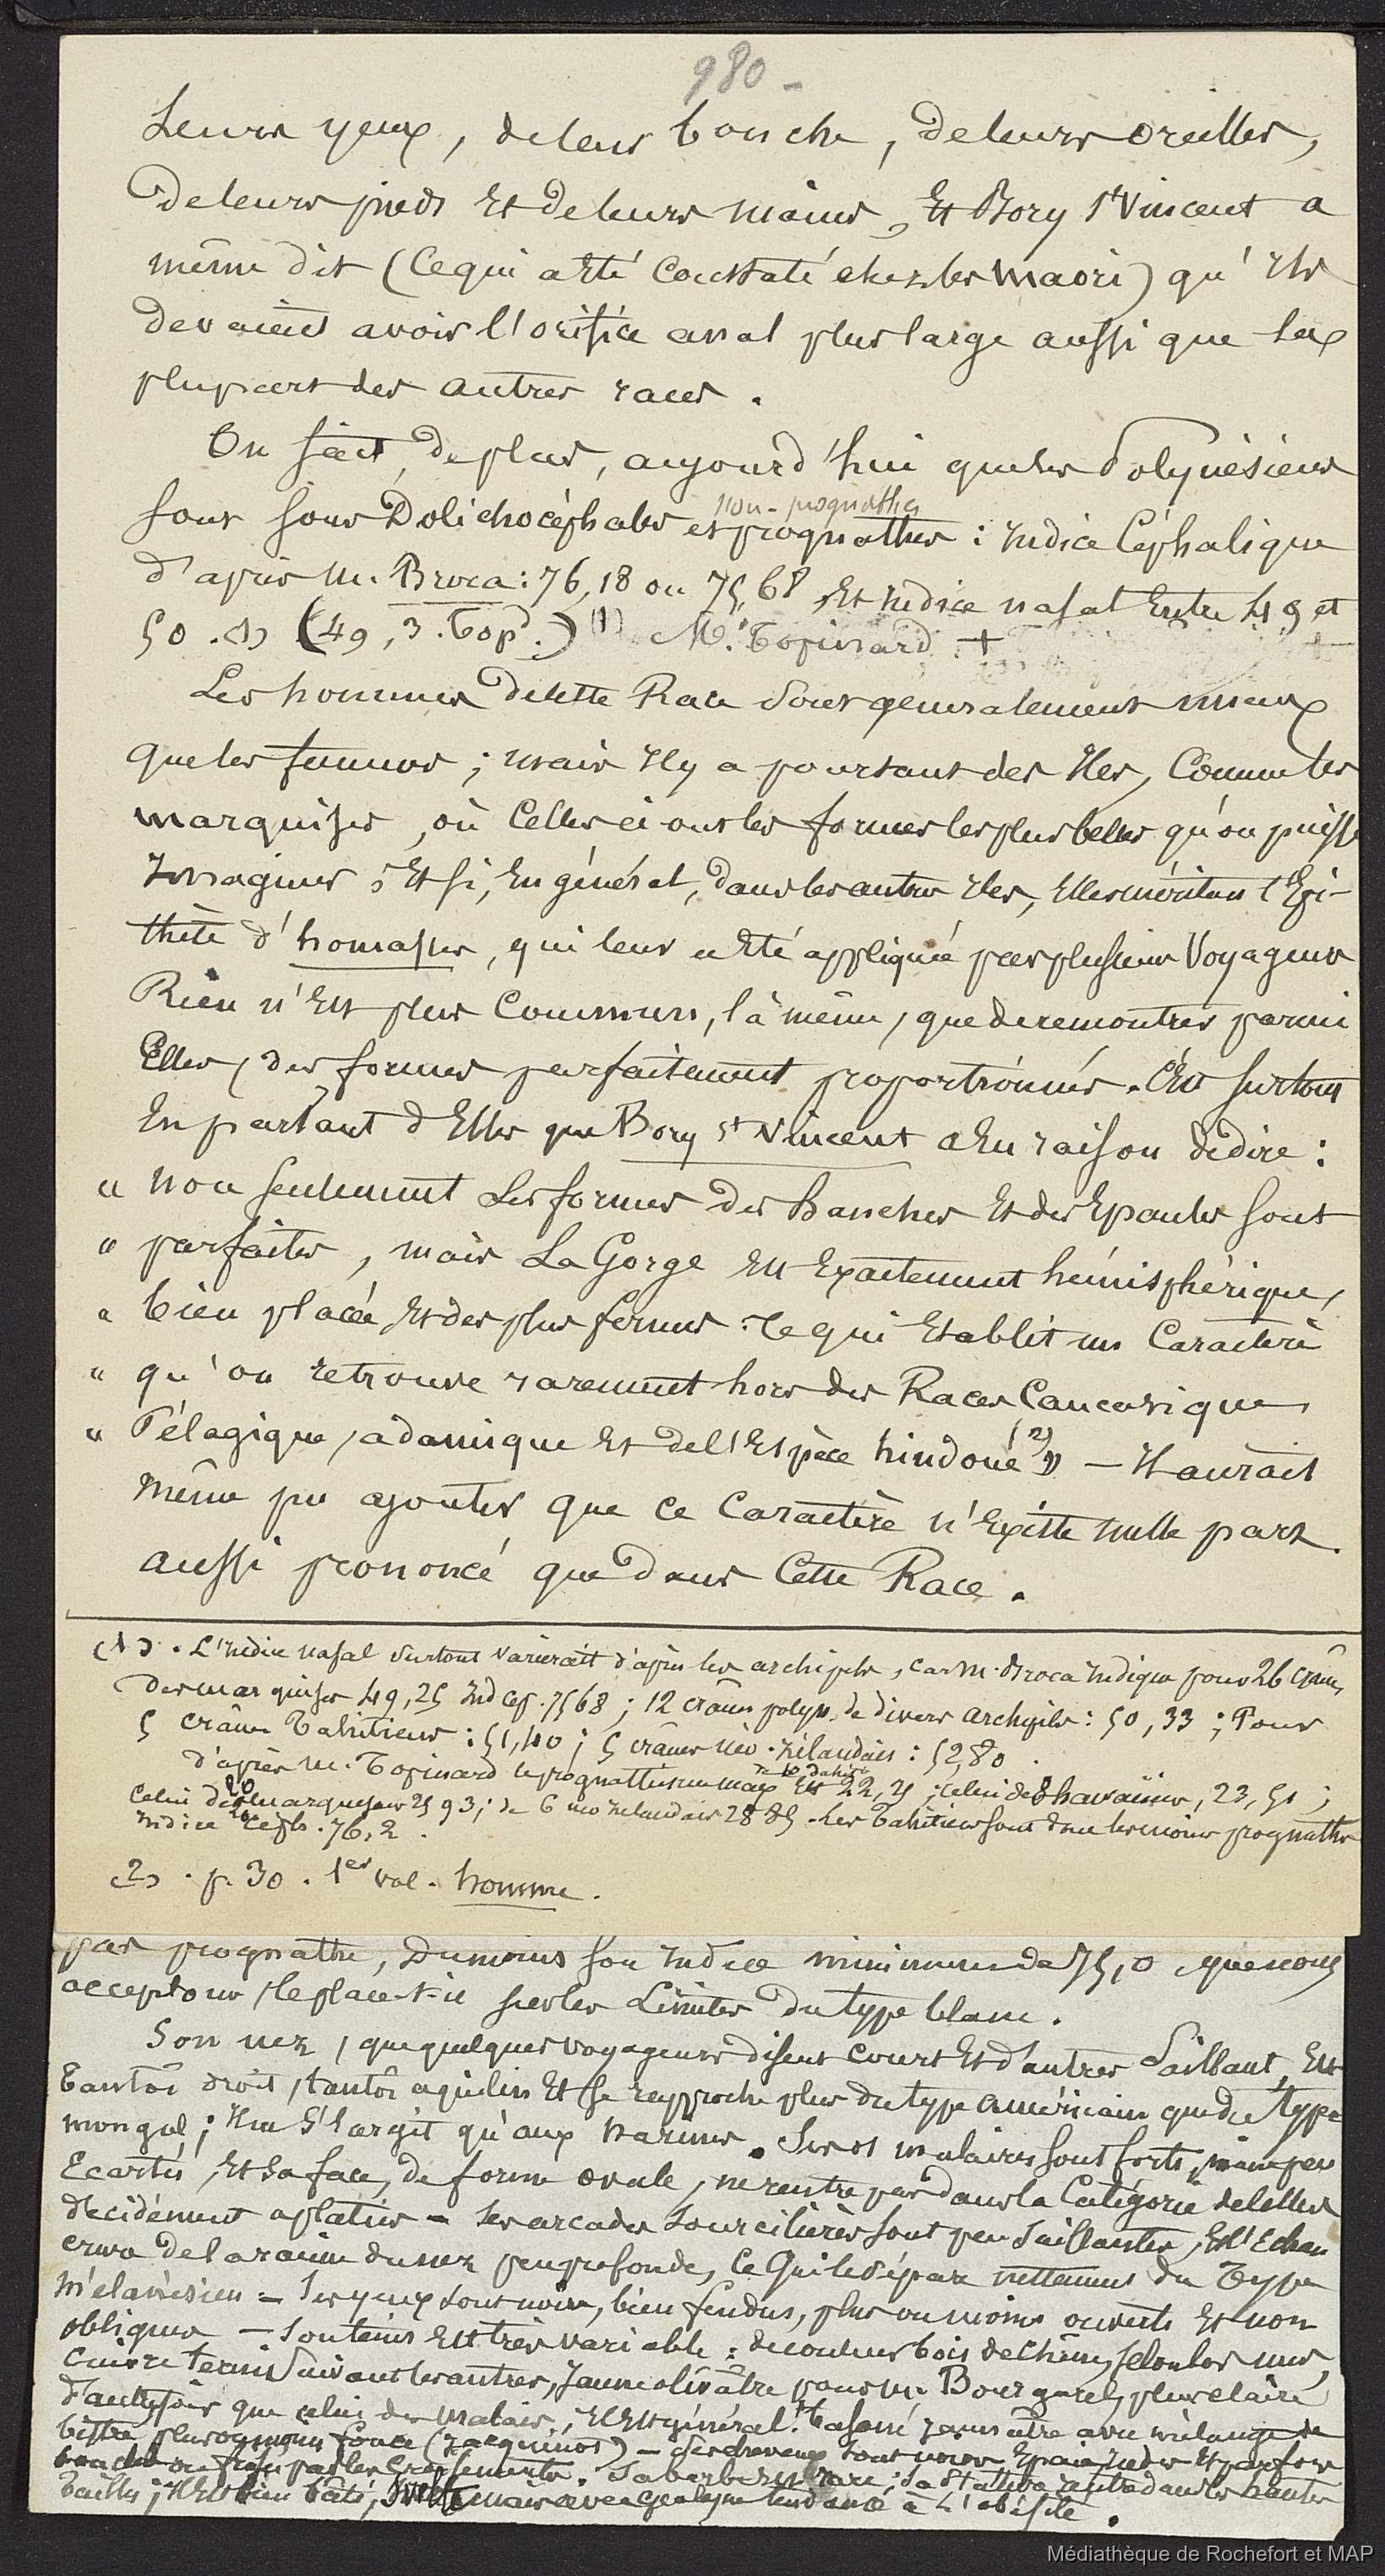 980 -
Leurs yeux, de leur bouche, de leurs oreilles,
De leurs pieds Et de leurs mains, Et Bory St Vincent a
même dit (Ce qui a Eté Constaté chez les Maori) qu'Ils
devaient avoir l'orifice anal plus large aussi que la
plupart des autres races.
On sait, de plus, aujourd'hui que les Polynésiens
sont sous Dolichocéphales et prognathes : Indice Céphalique
non-prognathes
d'après M. Broca : 76,18 ou 75,68, Et Indice nasal Entre 49 et
50. (1) (49,3. Top.) (1) M. Topinard +
Les hommes De cette Race Sont généralement mieux
que les femmes ; mais Il y a pourtant des Iles, Comme les
marquises, où Celles ci ont les formes les plus belles qu'on puisse
Imaginer ; Et si, En général, dans les autres Iles, Elles méritent l'Epi-
thète d'homasses, qui leur a Eté appliquée par plusieurs Voyageurs
Rien n'Est plus Commun, là même, que de rencontrer parmi
Elles, des formes parfaitement proportionnées. C'Est surtout
En parlant d'Elles que Bory St Vincent a Eu raison de dire :
" non seulement Les formes des hanches Et des Epaules sont
" parfaites, mais La Gorge Est Exactement hémisphérique,
" bien placée Et des plus fermes : Ce qui Etablit un Caractère
" qu'on retrouve rarement hors des Races Caucasique,
" Pélagique, adamique Et de l'Espèce hindoue (2) " — Il aurait
même pu ajouter que ce Caractère n'Existe nulle part
aussi prononcé que dans Cette Race.
(1). L'Indice nasal Surtout varierait d'après les archipels, car M. Broca Indique pour 26 crânes
Des marquises 49,25 Ind cép. 75 68 ; 12 crânes polyn. de divers archipels : 50,33 ; Pour
5 crânes Tahitiens : 51,40 ; 5 crânes néo-zélandais : 52,80.
D'après M. Topinard le prognathisme max de 10 Tahit. Est 22,25 ; celui de 8 havaiiens, 23,51 ;
Celui de 20 marquesans 25 93 ; de 6 néo zelandais 28 85. Les Tahitiens sont donc les moins prognathes
Indice céph. 76,2.
(2). p. 30. 1er vol. homme.
pas prognathe, Du moins son Indice minimum de 75,0 que nous
acceptons, le place-t-il sur les Limites Du type blanc.
Son nez, que quelques voyageurs disent court Et d'autres Saillant, Est
Tantôt droit, tantôt aquilin Et se rapproche plus du type américain que du type
mongol ; Il ne S'largit qu'aux narines. Ses os malaires sont forts, mais peu
Ecartés, Et sa face, de forme ovale, ne rentre pas dans la Catégorie de celles
décidément aplaties - Ses arcades Sourcilières sont peu Saillantes, Et l'Echan
crure de la racine du nez peu profonde, Ce qui le sépare nettement du Type
mélanésien - Ses yeux sont noirs, bien fendus, plus ou moins ouverts Et non
obliques — Son teint Est très variable : de couleur bois de chêne, selon les uns,
Cuivre terni Suivant les autres, Jaune olivâtre pour M. Bourgarel, plus clair
d'ailleurs que celui des Malais ; Il Est général. basané jaunâtre avec mélange de
bistre plus ou moins foncé (Jacquinot) — Ses cheveux sont noirs Epais rudes Et parfois
bouclés ou frisés par les Croisements. Sa barbe Est rare ; Sa Stature Est dans les hautes
Tailles ; Il Est bien bâti, svelte mais avec quelque tendance à L'obésité.
Médiathèque de Rochefort et MAP